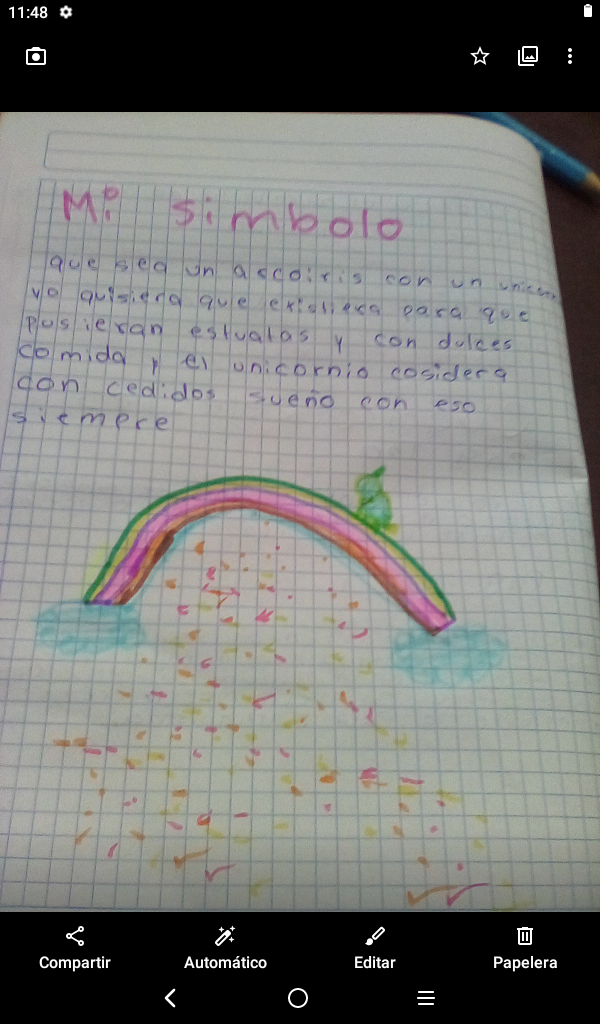 11:48
Mi simbolo
que sea un ascoiris con un unicor
yo quisiera que exisliera para que
pusieran estuatas y con dulces
comida y el unicornio cosidera
con cedidos sueño con eso
siempre
Compartir Automático Editar Papelera